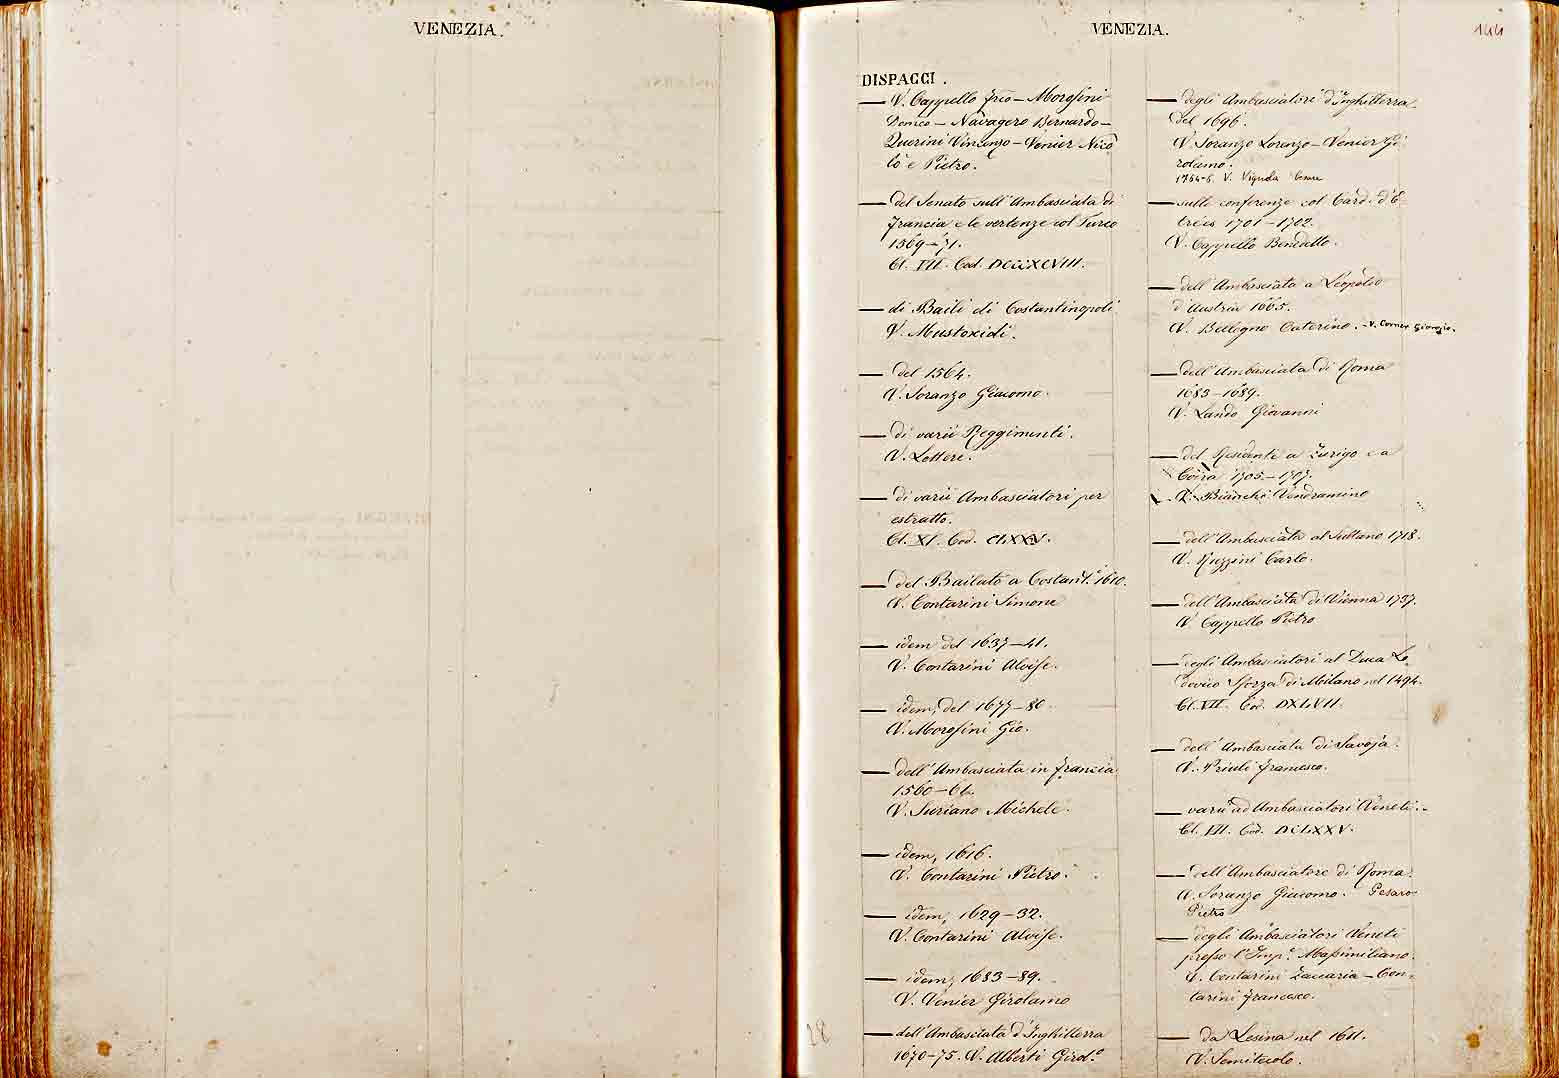 VENEZIA.
VENEZIA.
144
DISPACCI.
— V. Cappello Frco — Morosini
Domco — Navagero Bernardo —
Querini Vincenzo — Venier Nico
lò e Pietro.
— del Senato sull'Ambasciata di
Francia e le vertenze col Turco
1569-71.
Cl. VII. Cod. DCCXCVIII.
— di Baili di Costantinopoli
V. Mustoxidi.
— del 1564.
V. Soranzo Giacomo.
— di varii Reggimenti.
V. Lettere.
— di varii Ambasciatori per
estratto.
Cl. XI. Cod. CLXXV.
— del Bailato a Costant.º 1610.
V. Contarini Simone
— idem del 1637-41.
V. Contarini Alvise.
— idem, del 1677-80.
V. Morosini Gio.
— dell'Ambasciata in Francia
1560-61.
V. Suriano Michele.
— idem, 1616.
V. Contarini Pietro.
— idem, 1629-32.
V. Contarini Alvise.
— idem, 1683-89.
V. Venier Girolamo
— dell'Ambasciata d'Inghilterra
1670-75. V. Alberti Girol.º
28
— degli Ambasciatori d'Inghilterra
del 1696.
V. Soranzo Lorenzo — Venier Gi
rolamo.
1764-6. V. Vignola Cesare
— sulle conferenze col Card. d'E
trées 1701-1702.
V. Cappello Benedetto.
— dell'Ambasciata a Leopoldo
d'Austria 1665.
V. Bellegno Caterino. - V. Corner Giorgio.
— dell'Ambasciata di Roma
1683-1689.
V. Lando Giovanni
— del Residente a Zurigo e a
Coira 1705-1707.
V. Bianchi Vendramino
— dell'Ambasciata al Sultano 1718.
V. Ruzzini Carlo.
— dell'Ambasciata di Vienna 1737.
V. Cappello Pietro
— degli Ambasciatori al Duca Lo
dovico Sforza di Milano nel 1494.
Cl. VII. Cod. DXLVII.
— dell'Ambasciata di Savoja.
V. Priuli Francesco.
— varii ad Ambasciatori Veneti.
Cl. VII. Cod. DCLXXV.
— dell'Ambasciatore di Roma.
V. Soranzo Giacomo. Pesaro
Pietro
— degli Ambasciatori Veneti
presso l'Imp.º Massimiliano.
V. Contarini Zaccaria — Con-
tarini Francesco.
— da Lesina nel 1611.
V. Semitecolo.